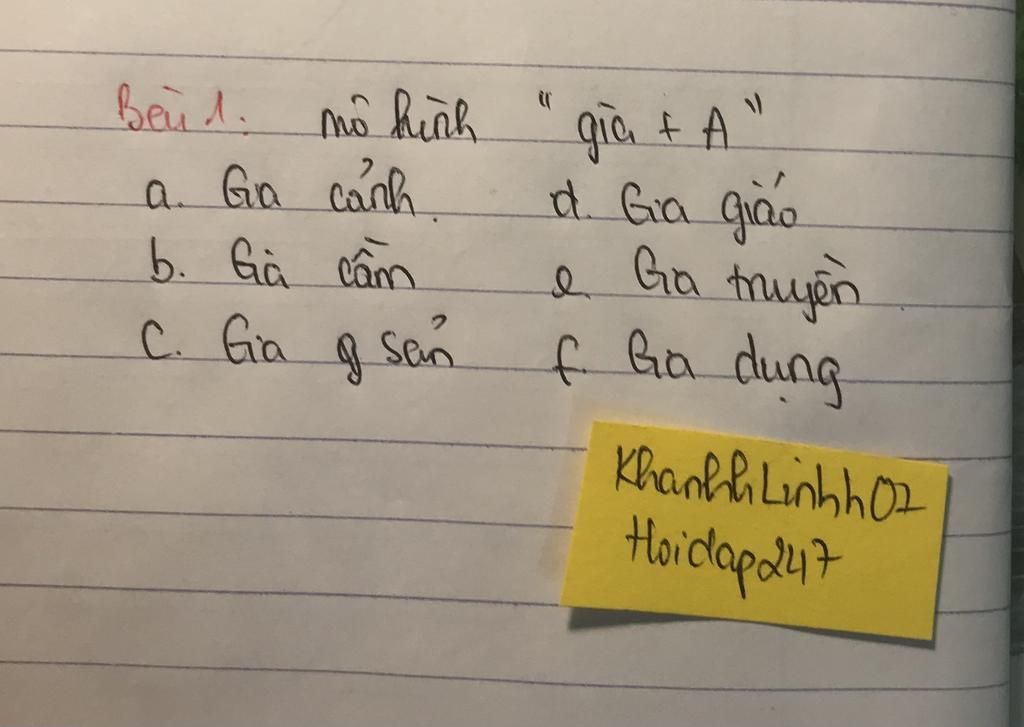 Bài 1: mô hình "gia + A"
a. Gia cảnh. d. Gia giáo
b. Gia cầm e. Gia truyền
c. Gia g sản f. Gia dụng
KhanhhLinhh02
Hoidap247